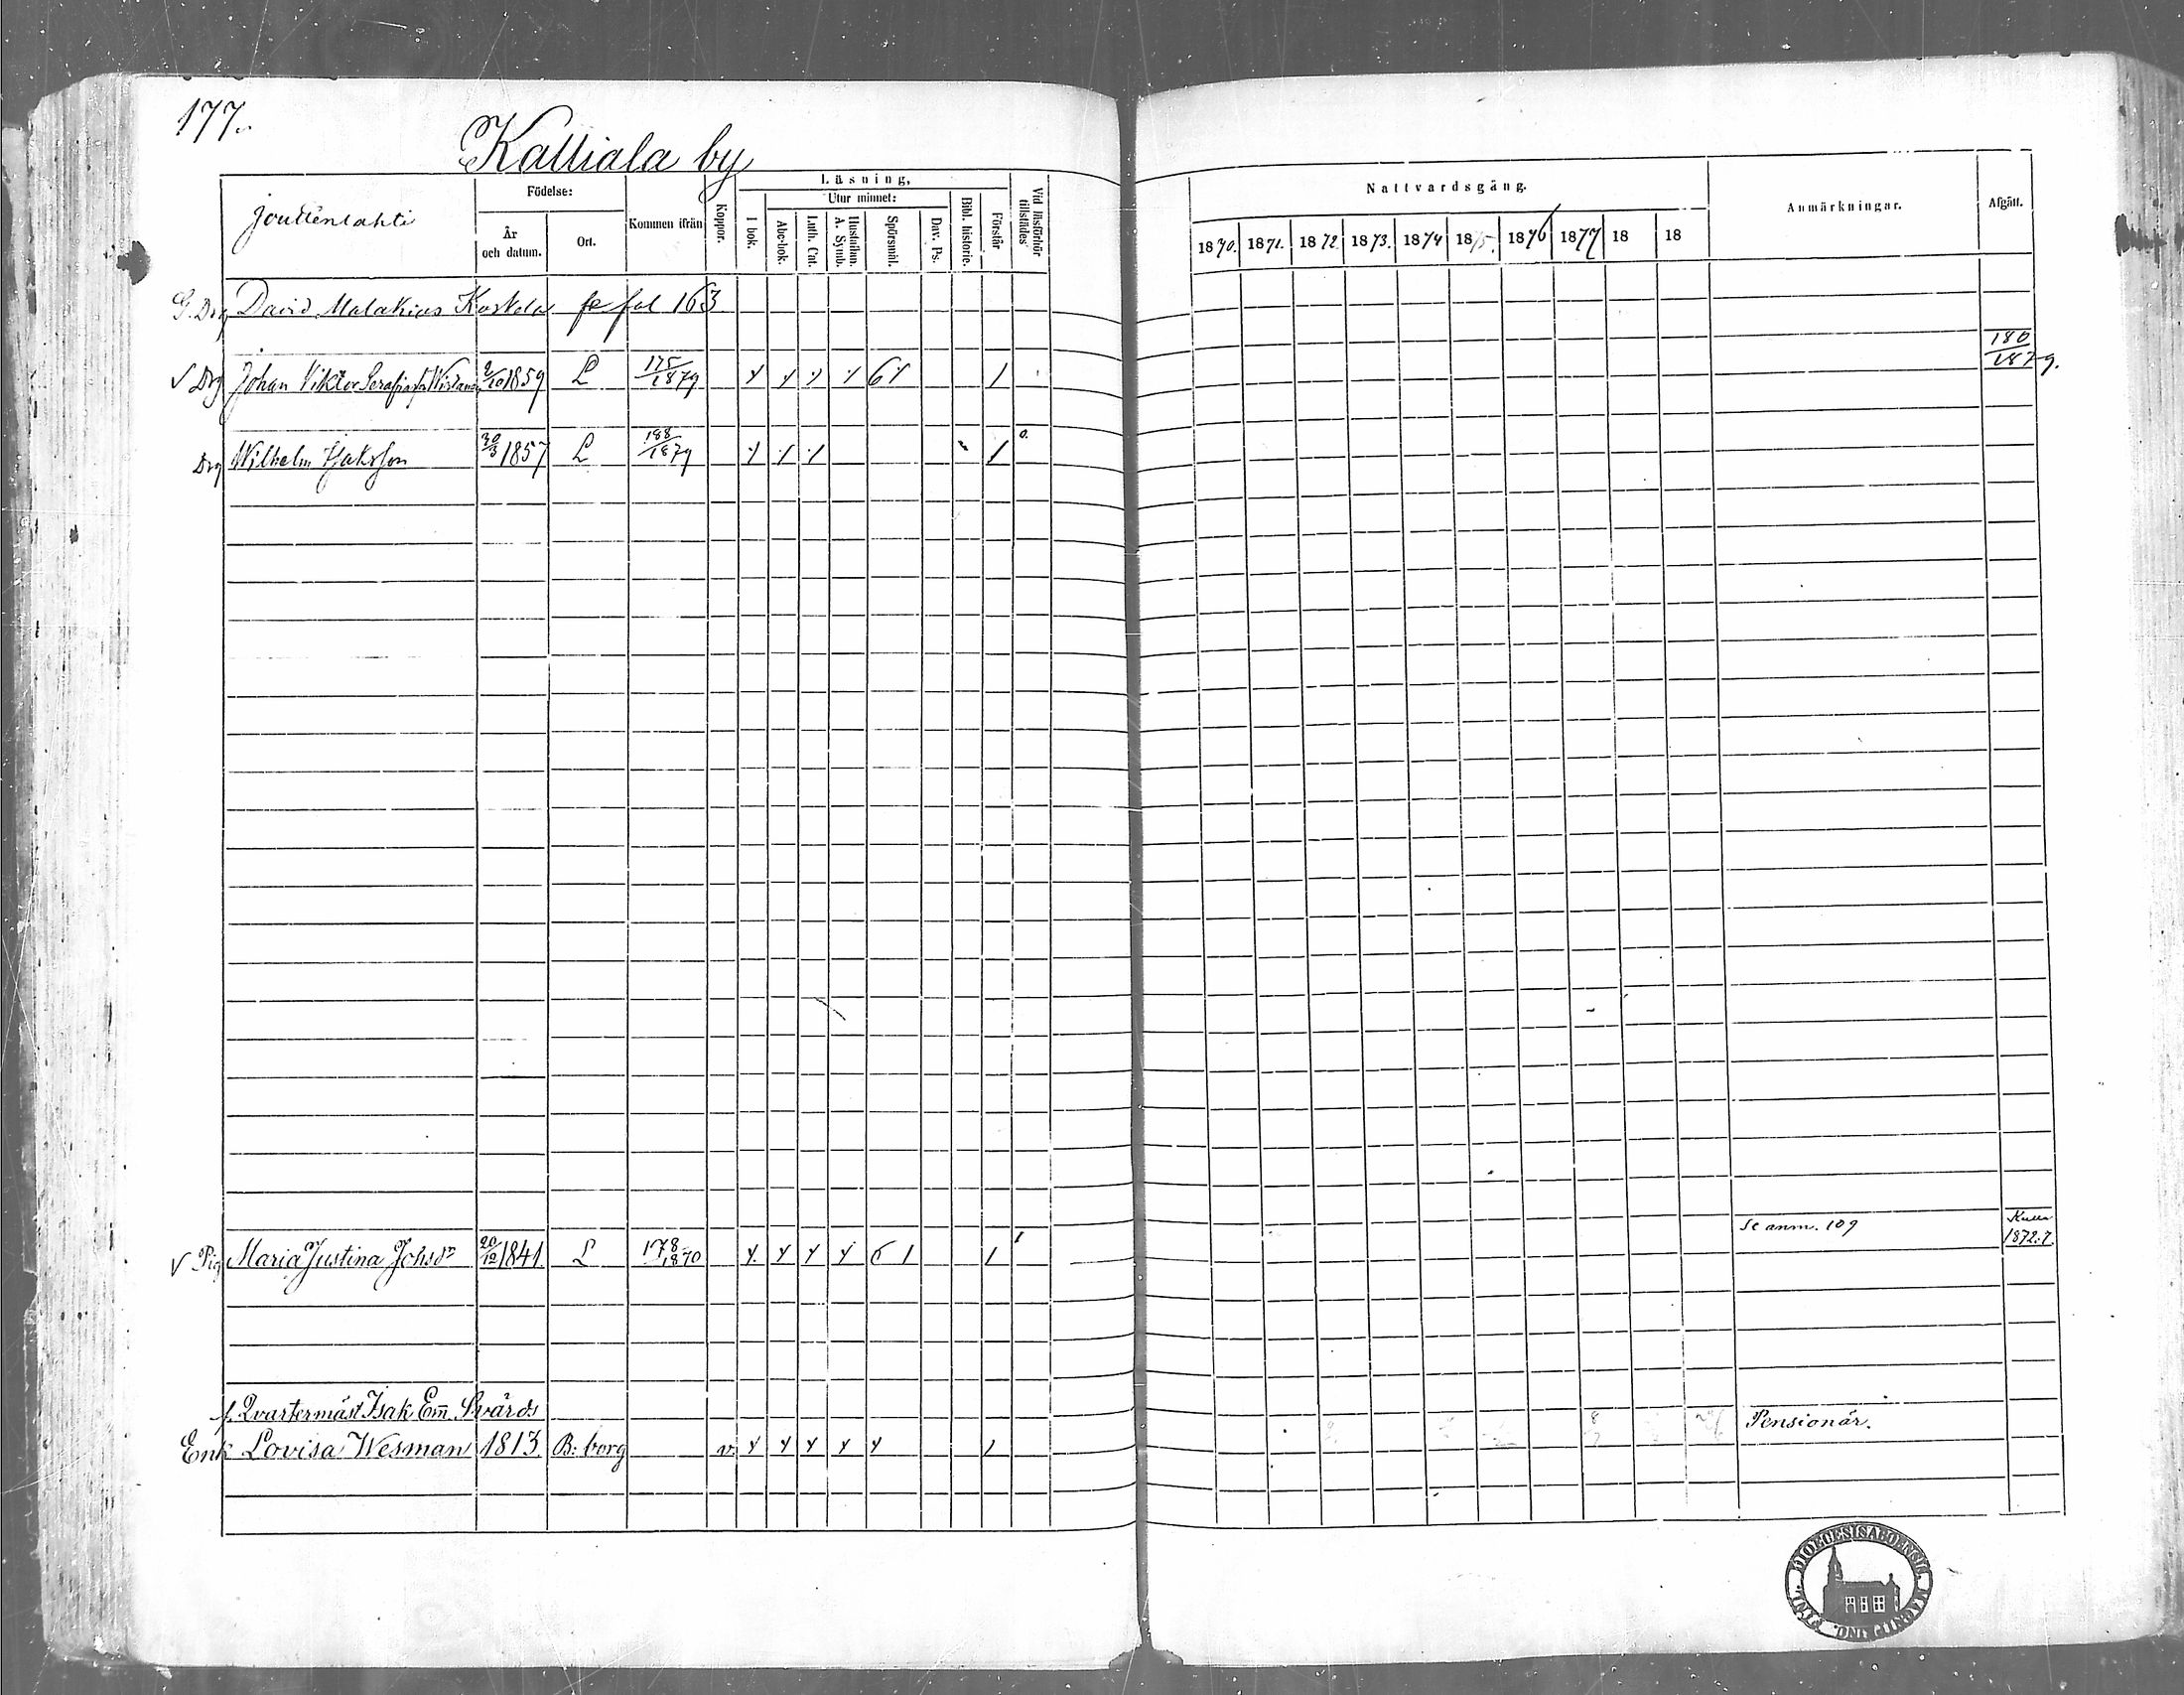 177.
Kalliala by
Jouttenlahti
Födelse:
År och datum.
Ort.
Kommen ifrån
Koppor.
Läsning,
I bok.
Utur minnet:
Abc-bok.
Luth. Cat.
Hustaflan. A. Symb.
Spörsmål.
Dav. Ps.
Bibl. historie.
Förstår
Vid läsförhör tillstädes
Nattvardsgång.
1870. 1871. 1872 1873. 1874 1875. 1876 1877 18 18
Anmärkningar.
Afgått.
G. Drg David Malakias Koskela se fol 163
180/1879.
√ Drg Johan Viktor Serafia 2/10 1859 L 175/1879 6 1 1
Drg Wilhelm Isaksson 30/3 1857 L 188/1879 1
√ Pig Maria Justina Johsdr 20/12 1841 L 178/1870 6 1 1 Se anm. 109 Kulla 1872.7.
f. Qvartermäst Isak Em. Svärds
Enk Lovisa Wesman 1813. B:borg v. 1 Pensionär.
DIOECESIS ABOENSIS
MAGNI DUC.
FINL.